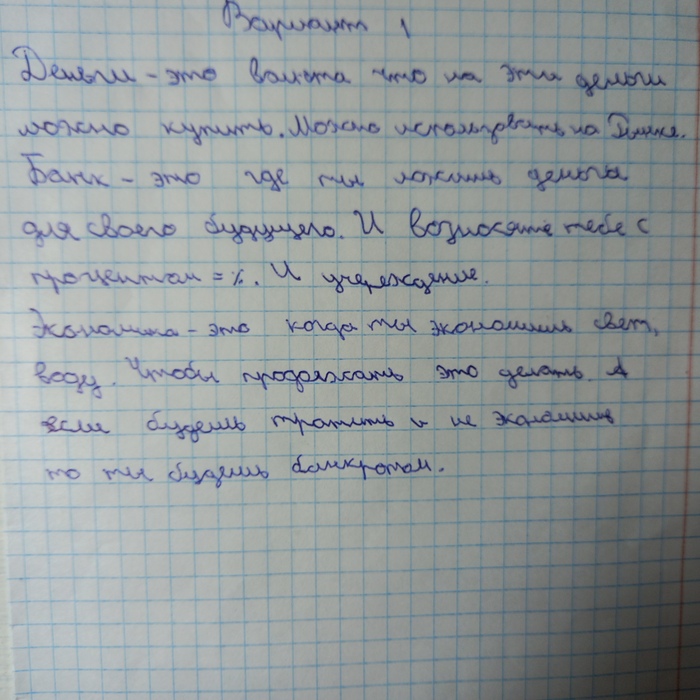 Вариант 1
Деньги – это валюта что на эти деньги
можно купить. Можно использовать на рынке.
Банк – это где ты ложишь деньги
для своего будущего. И возносять тебе с
процентом = %. И учереждение.
Экономика – это когда ты экономишь свет,
воду. Чтобы продолжать это делать. А
если будешь тратить и не экономить
то ты будешь банкротом.